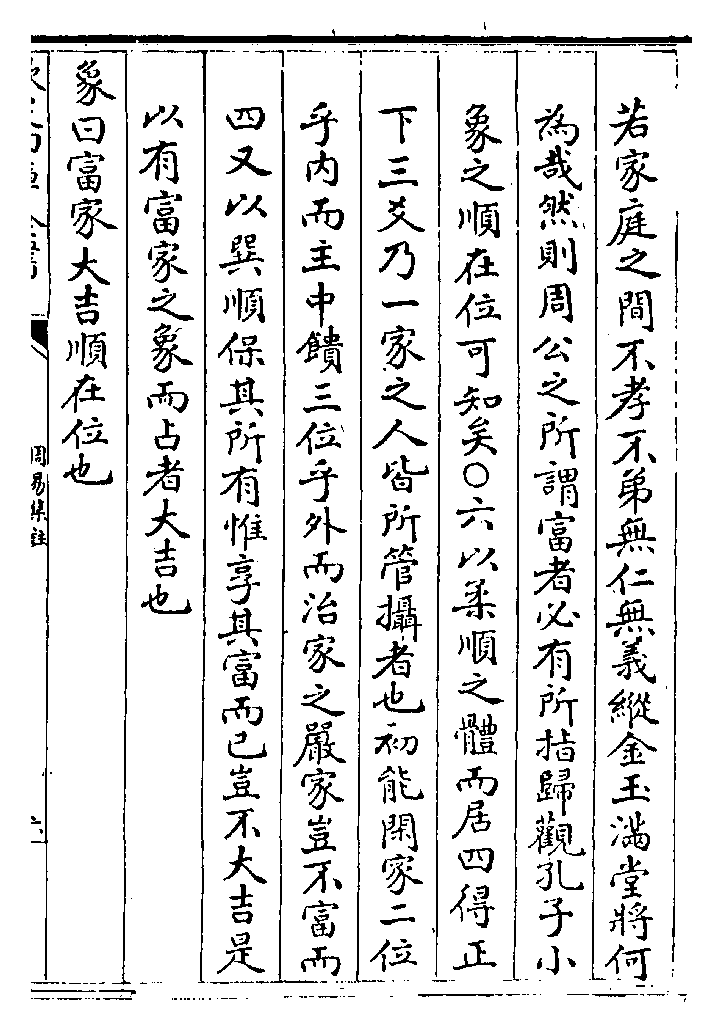 若家庭之間不孝不弟無仁無義縱金玉滿堂將何
為哉然則周公之所謂富者必有所指歸觀孔子小
象之順在位可知矣○六以柔順之體而居四得正
下三爻乃一家之人皆所管攝者也初能閑家二位
乎内而主中饋三位乎外而治家之嚴家豈不富而
四又以巽順保其所有惟享其富而已豈不大吉是
以有富家之象而占者大吉也
象曰富家大吉順在位也
周易集註